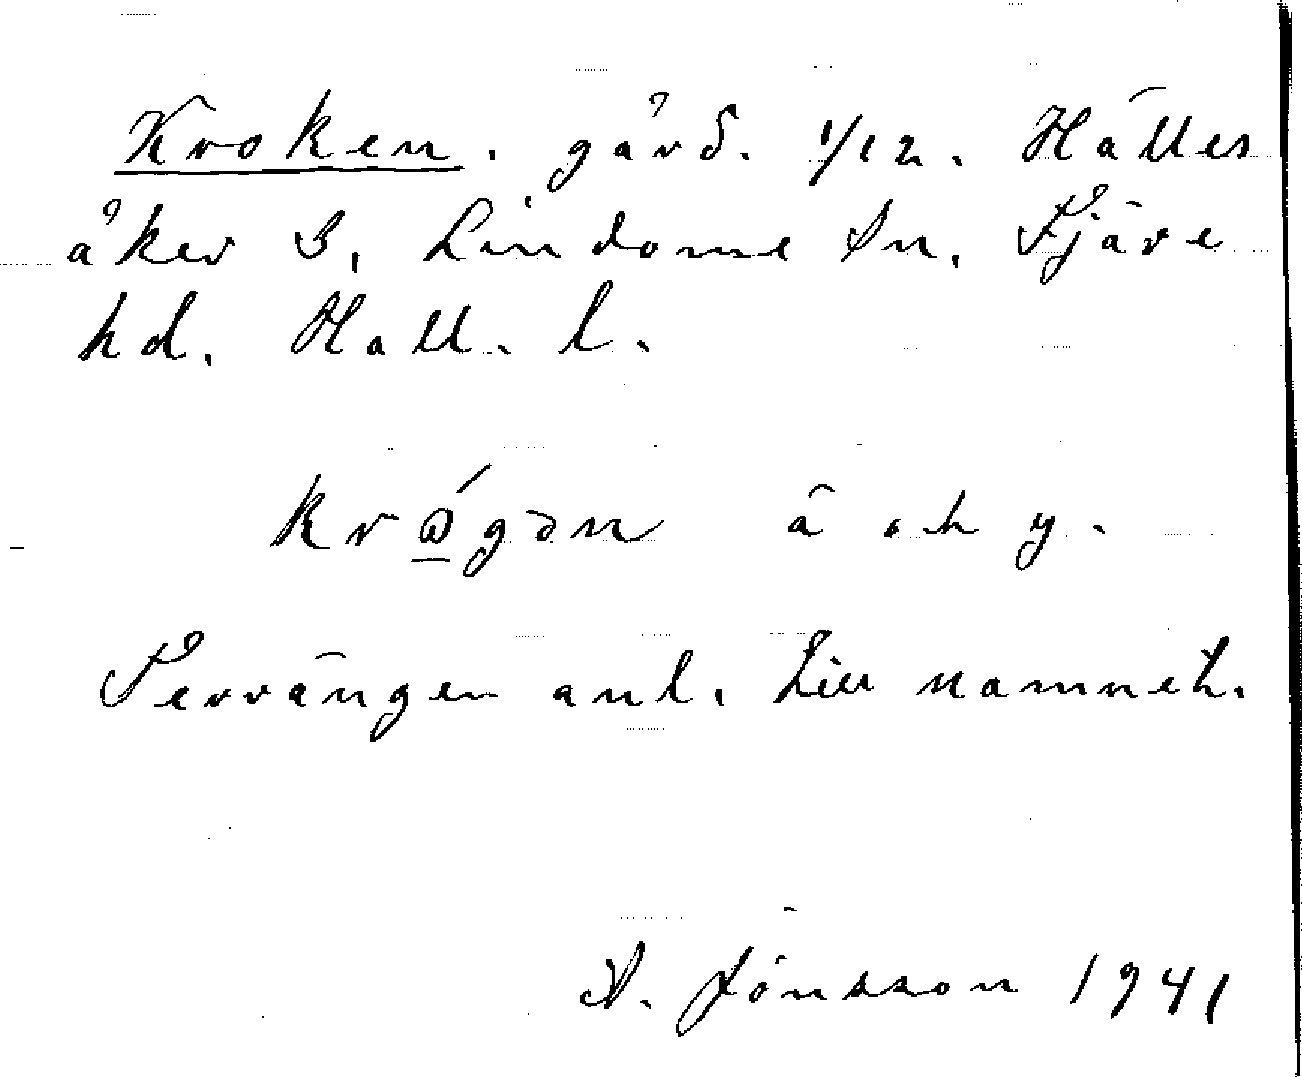 Kroken. gård. 1/12. Hälles
åker B, Lindome Sn. Fjäre
hd. Hall. l.
krώ̲gən ä och y.
Terrängen anl. till namnet.
A. Jönsson 1941